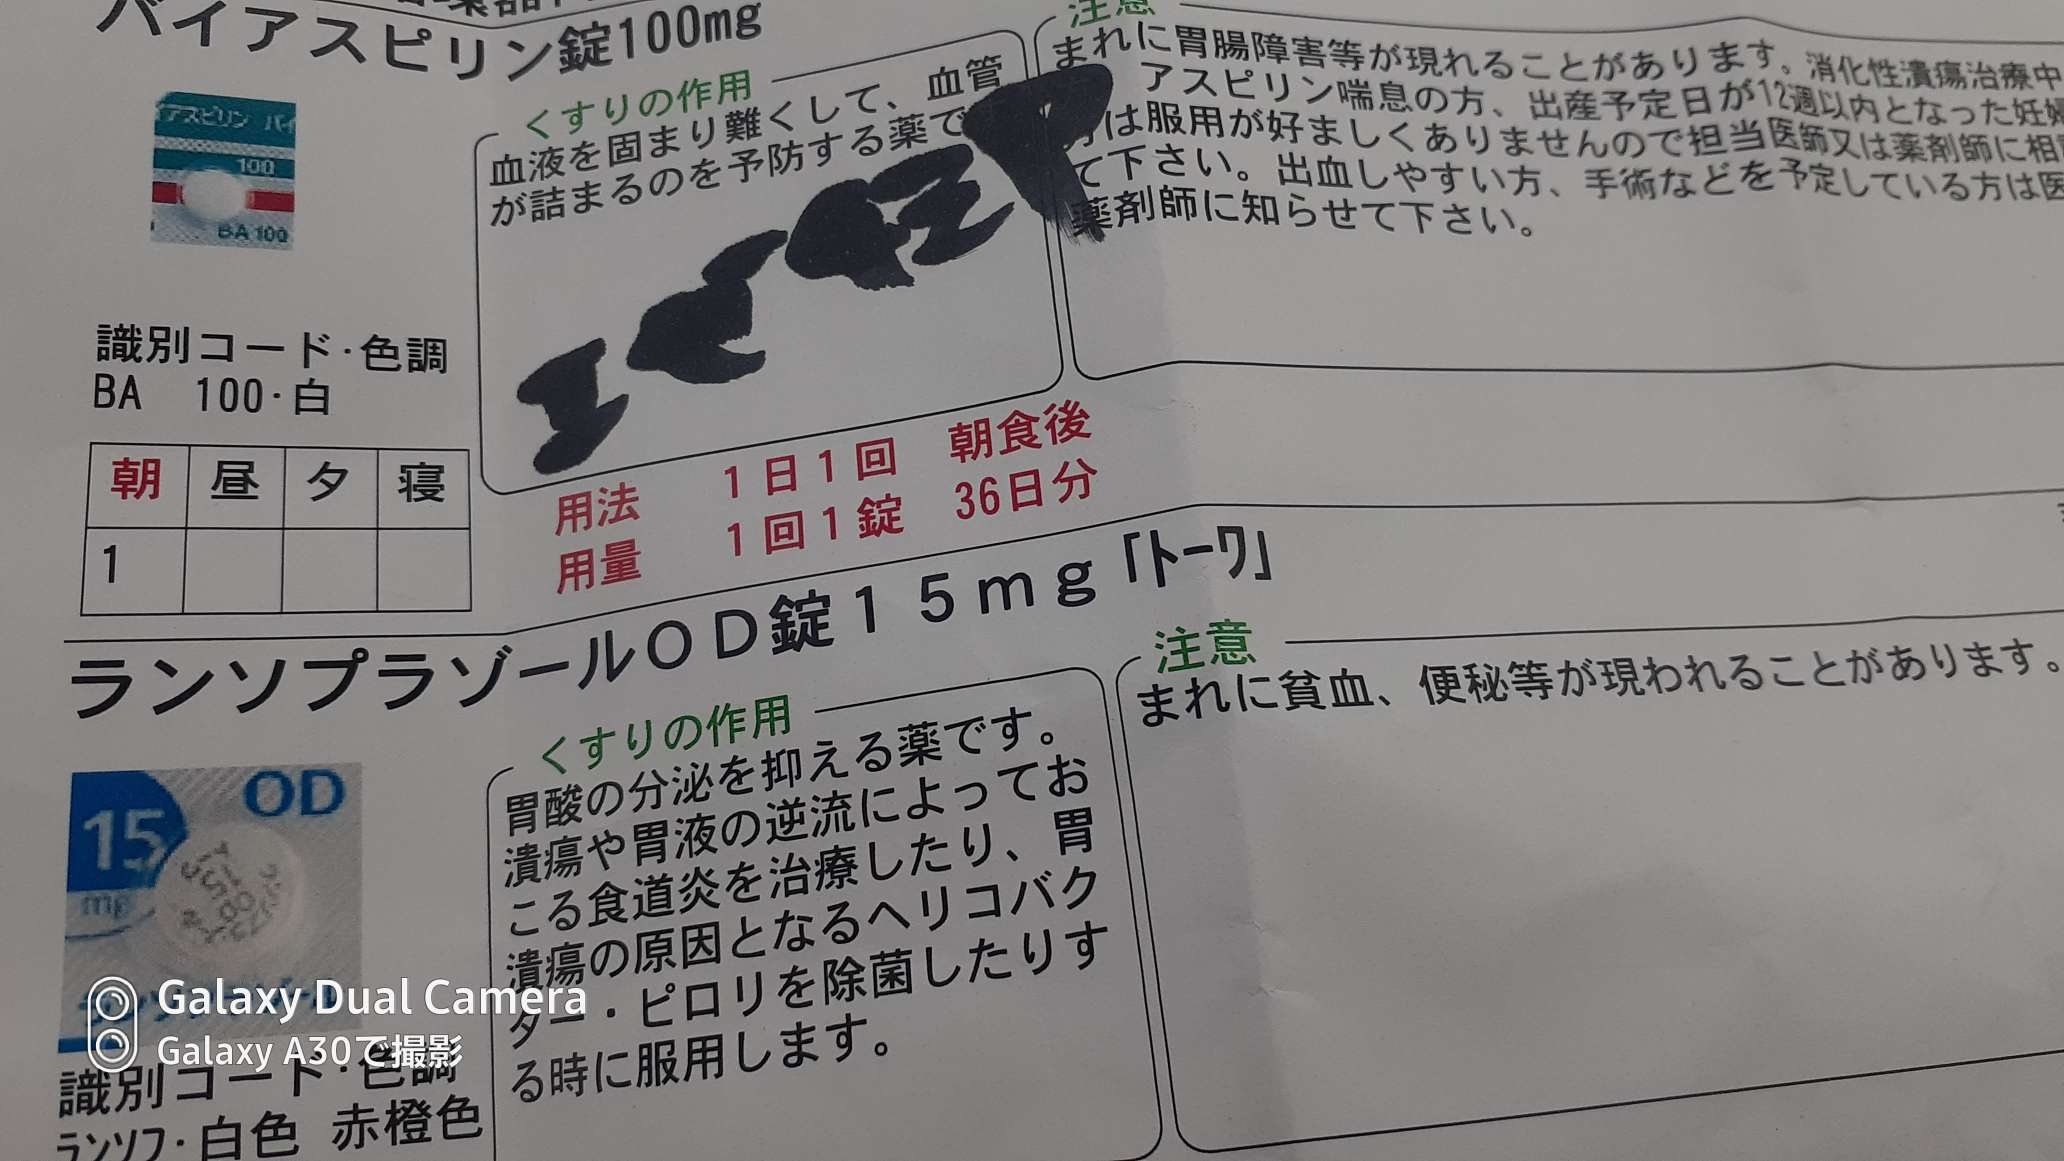 バイアスピリン錠100mg
くすりの作用
血液を固まり難くして、血管
が詰まるのを予防する薬で
注意
まれに胃腸障害等が現れることがあります。消化性潰瘍治療中
アスピリン喘息の方、出産予定日が12週以内となった妊婦
は服用が好ましくありませんので担当医師又は薬剤師に相
て下さい。出血しやすい方、手術などを予定している方は医
薬剤師に知らせて下さい。
アスピリン バイ
100
BA 100
識別コード・色調
BA 100・白
朝 昼 夕 寝
1
用法 1日1回 朝食後
用量 1回1錠 36日分
ランソプラゾールOD錠15mg「トーワ」
くすりの作用
胃酸の分泌を抑える薬です。
潰瘍や胃液の逆流によってお
こる食道炎を治療したり、胃
潰瘍の原因となるヘリコバク
ター・ピロリを除菌したりす
る時に服用します。
注意
まれに貧血、便秘等が現われることがあります。
OD
15
mg
Galaxy Dual Camera
Galaxy A30で撮影
識別コード・色調
ランソプ・白色 赤橙色